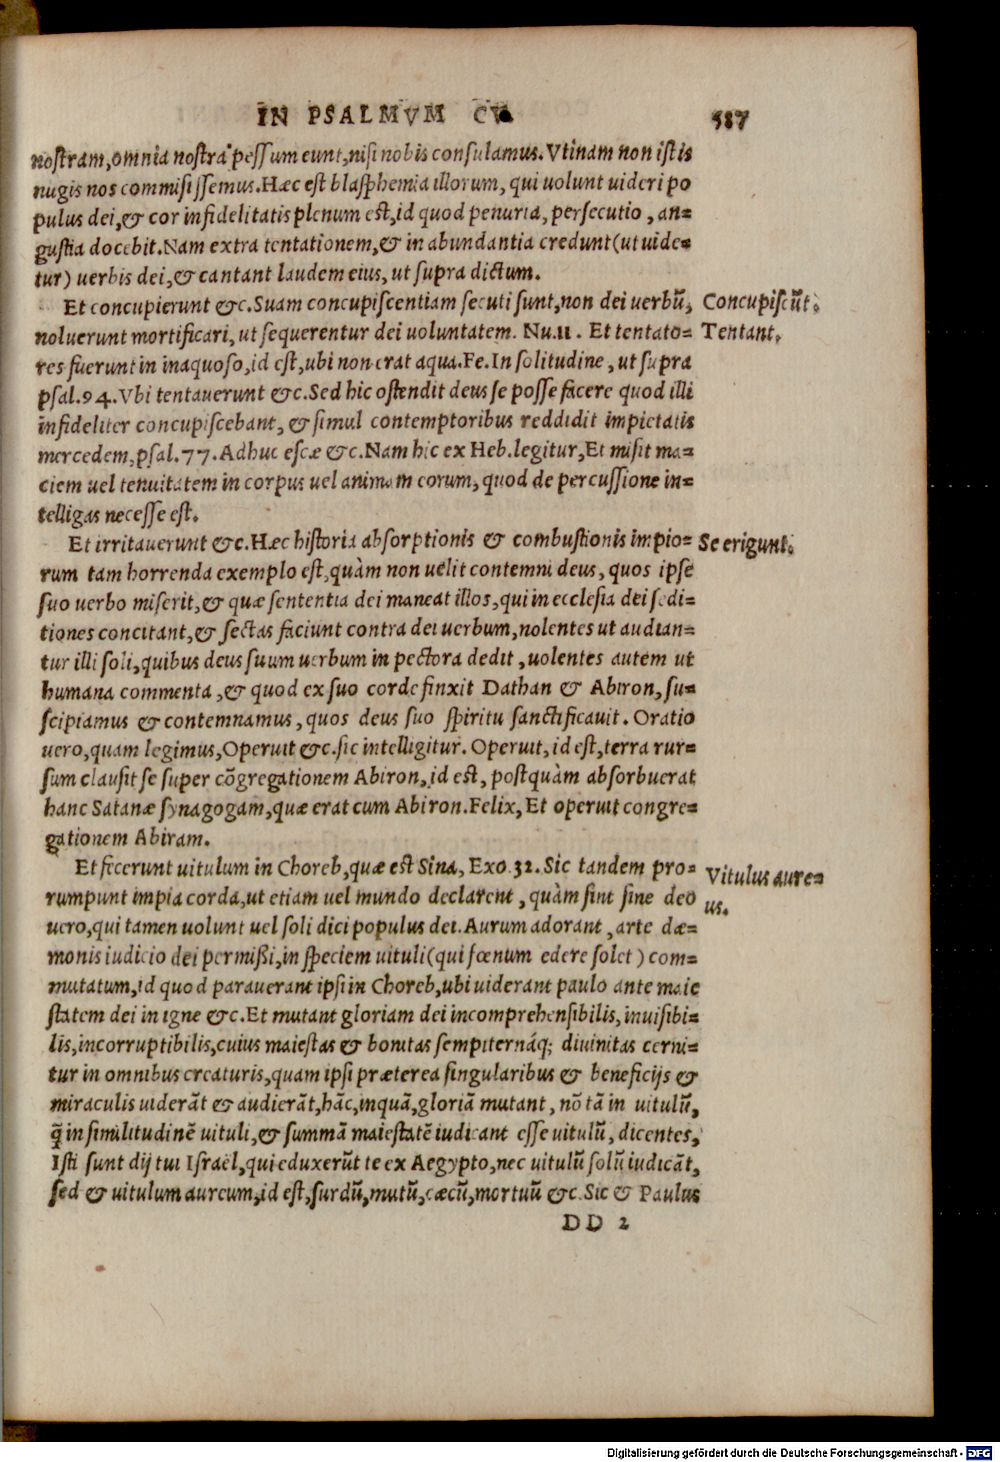 IN PSALMVM CV 587
nostram, omnia nostra pessum eunt, nisi nobis consulamus. Vtinam non istis
nugis nos commisissemus. Hæc est blasphemia illorum, qui uolunt uideri po
pulus dei, & cor infidelitatis plenum est, id quod penuria, persecutio, an=
gustia docebit. Nam extra tentationem, & in abundantia credunt (ut uide=
tur) uerbis dei, & cantant laudem eius, ut supra dictum.
Et concupierunt &c. Suam concupiscentiam secuti sunt, non dei uerbũ, Concupiscũt.
noluerunt mortificari, ut sequerentur dei uoluntatem. Nu.11. Et tentato= Tentant.
res fuerunt in inaquoso, id est, ubi non erat aqua. Fe. In solitudine, ut supra
psal.94. Vbi tentauerunt &c. Sed hic ostendit deus se posse facere quod illi
infideliter concupiscebant, & simul contemptoribus reddidit impietatis
mercedem, psal.77. Adhuc escæ &c. Nam hic ex Heb. legitur, Et misit ma=
ciem uel tenuitatem in corpus uel animam eorum, quod de percussione in=
telligas necesse est.
Et irritauerunt &c. Hæc historia absorptionis & combustionis impio= Se erigunt.
rum tam horrenda exemplo est, quàm non uelit contemni deus, quos ipse
suo uerbo miserit, & quæ sententia dei maneat illos, qui in ecclesia dei sedi=
tiones concitant, & sectas faciunt contra dei uerbum, nolentes ut audian=
tur illi soli, quibus deus suum uerbum in pectora dedit, uolentes autem ut
humana commenta, & quod ex suo corde finxit Dathan & Abiron, su=
scipiamus & contemnamus, quos deus suo spiritu sanctificauit. Oratio
uero, quam legimus, Operuit &c. sic intelligitur. Operuit, id est, terra rur=
sum clausit se super cõgregationem Abiron, id est, postquàm absorbuerat
hanc Satanæ synagogam, quæ erat cum Abiron. Felix, Et operuit congre=
gationem Abiram.
Et fecerunt uitulum in Choreb, quæ est Sina, Exo.32. Sic tandem pro= Vitulus aure=
rumpunt impia corda, ut etiam uel mundo declarent, quàm sint sine deo us.
uero, qui tamen uolunt uel soli dici populus dei. Aurum adorant, arte dæ=
monis iudicio dei permißi, in speciem uituli (qui fœnum edere solet) com=
mutatum, id quod parauerant ipsi in Choreb, ubi uiderant paulo ante maie
statem dei in igne &c. Et mutant gloriam dei incomprehensibilis, inuisibi=
lis, incorruptibilis, cuius maiestas & bonitas sempiternáq; diuinitas cerni=
tur in omnibus creaturis, quam ipsi præterea singularibus & beneficijs &
miraculis uiderãt & audierãt, hãc, inquã, gloriã mutant, nõ tã in uitulũ,
q̃ in similitudinẽ uituli, & summã maiestatẽ iudicant esse uitulũ, dicentes,
Isti sunt dij tui Israël, qui eduxerũt te ex Aegypto, nec uitulũ solũ iudicãt,
sed & uitulum aureum, id est, surdũ, mutũ, cæcũ, mortuũ &c. Sic & Paulus
DD 2
Digitalisierung gefördert durch die Deutsche Forschungsgemeinschaft - DFG